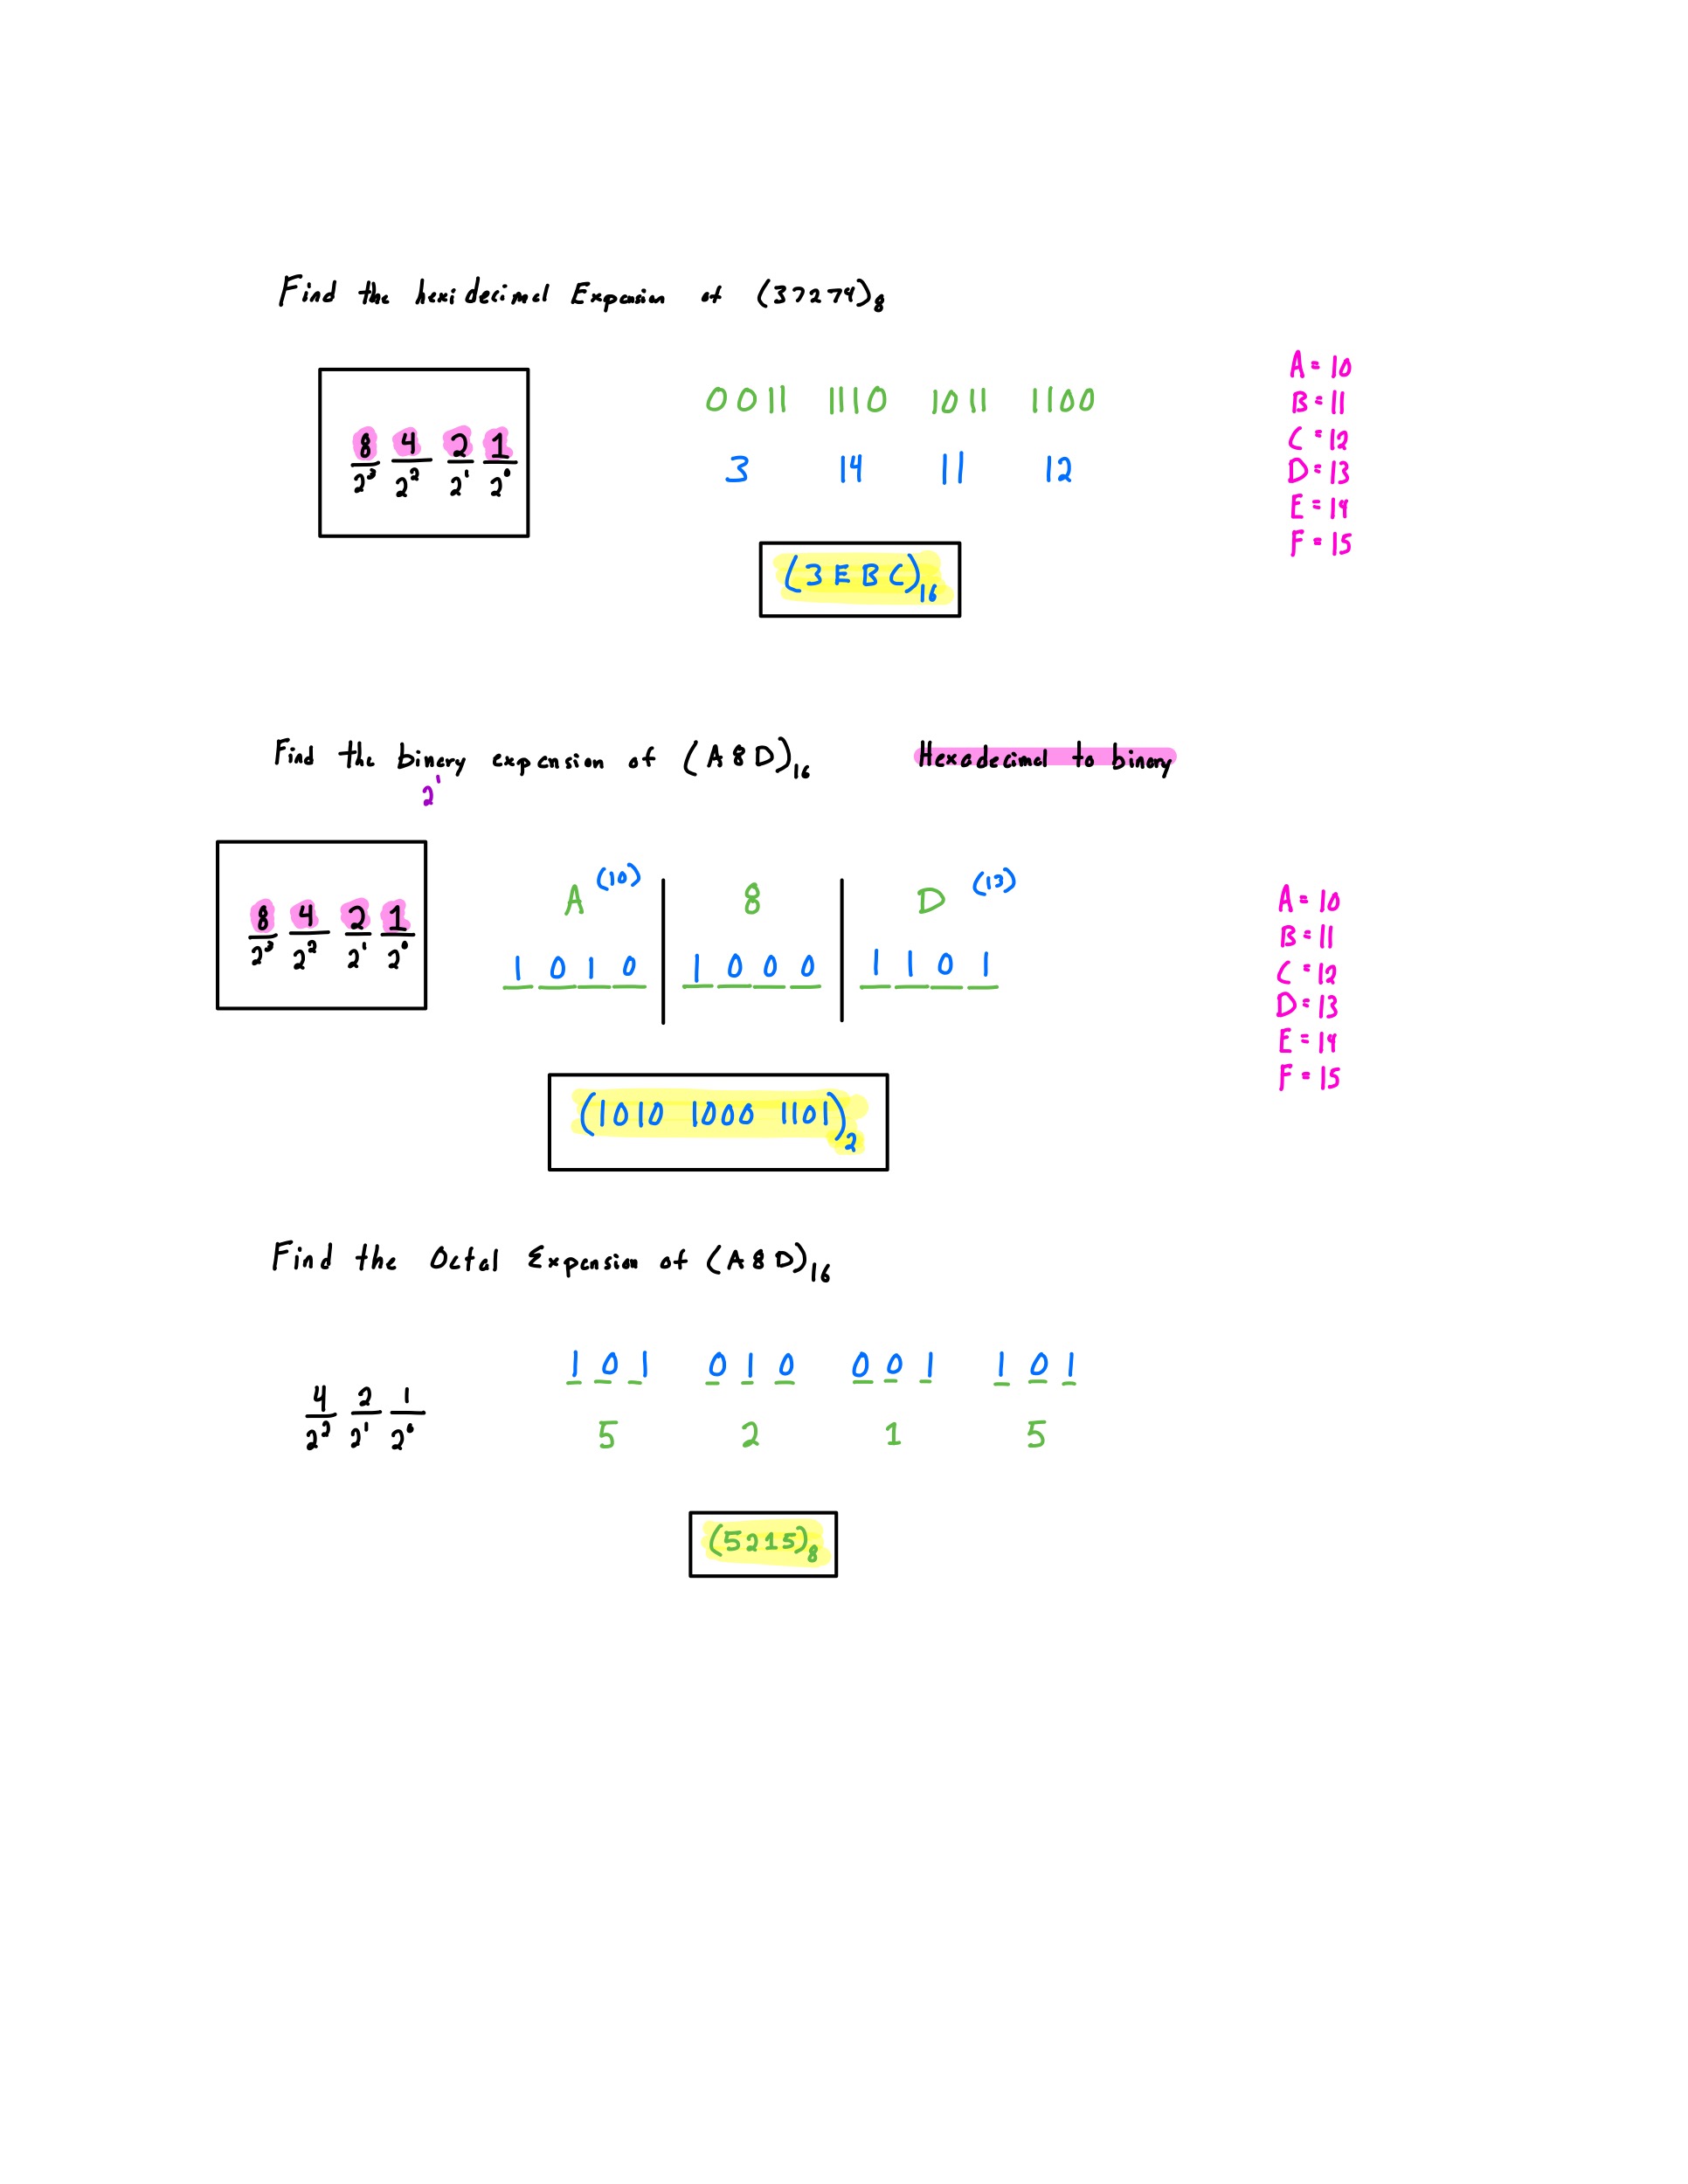 Find the hexidecimal Expansion of (37274)₈
8 4 2 1
2³ 2² 2¹ 2⁰
0011 1110 1011 1100
3 14 11 12
(3EBC)₁₆
A = 10
B = 11
C = 12
D = 13
E = 14
F = 15
Find the binary expansion of (A8D)₁₆ Hexadecimal to binary
2¹
8 4 2 1
2³ 2² 2¹ 2⁰
A (10) 8 D (13)
1 0 1 0 1 0 0 0 1 1 0 1
(1010 1000 1101)₂
A = 10
B = 11
C = 12
D = 13
E = 14
F = 15
Find the Octal Expansion of (A8D)₁₆
4 2 1
2² 2¹ 2⁰
1 0 1 0 1 0 0 0 1 1 0 1
5 2 1 5
(5215)₈